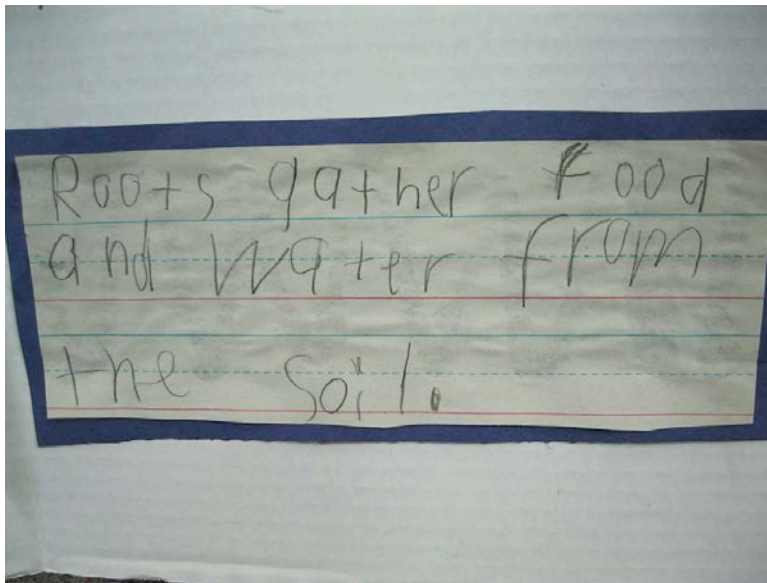 Roots gather food
and water from
the soil.